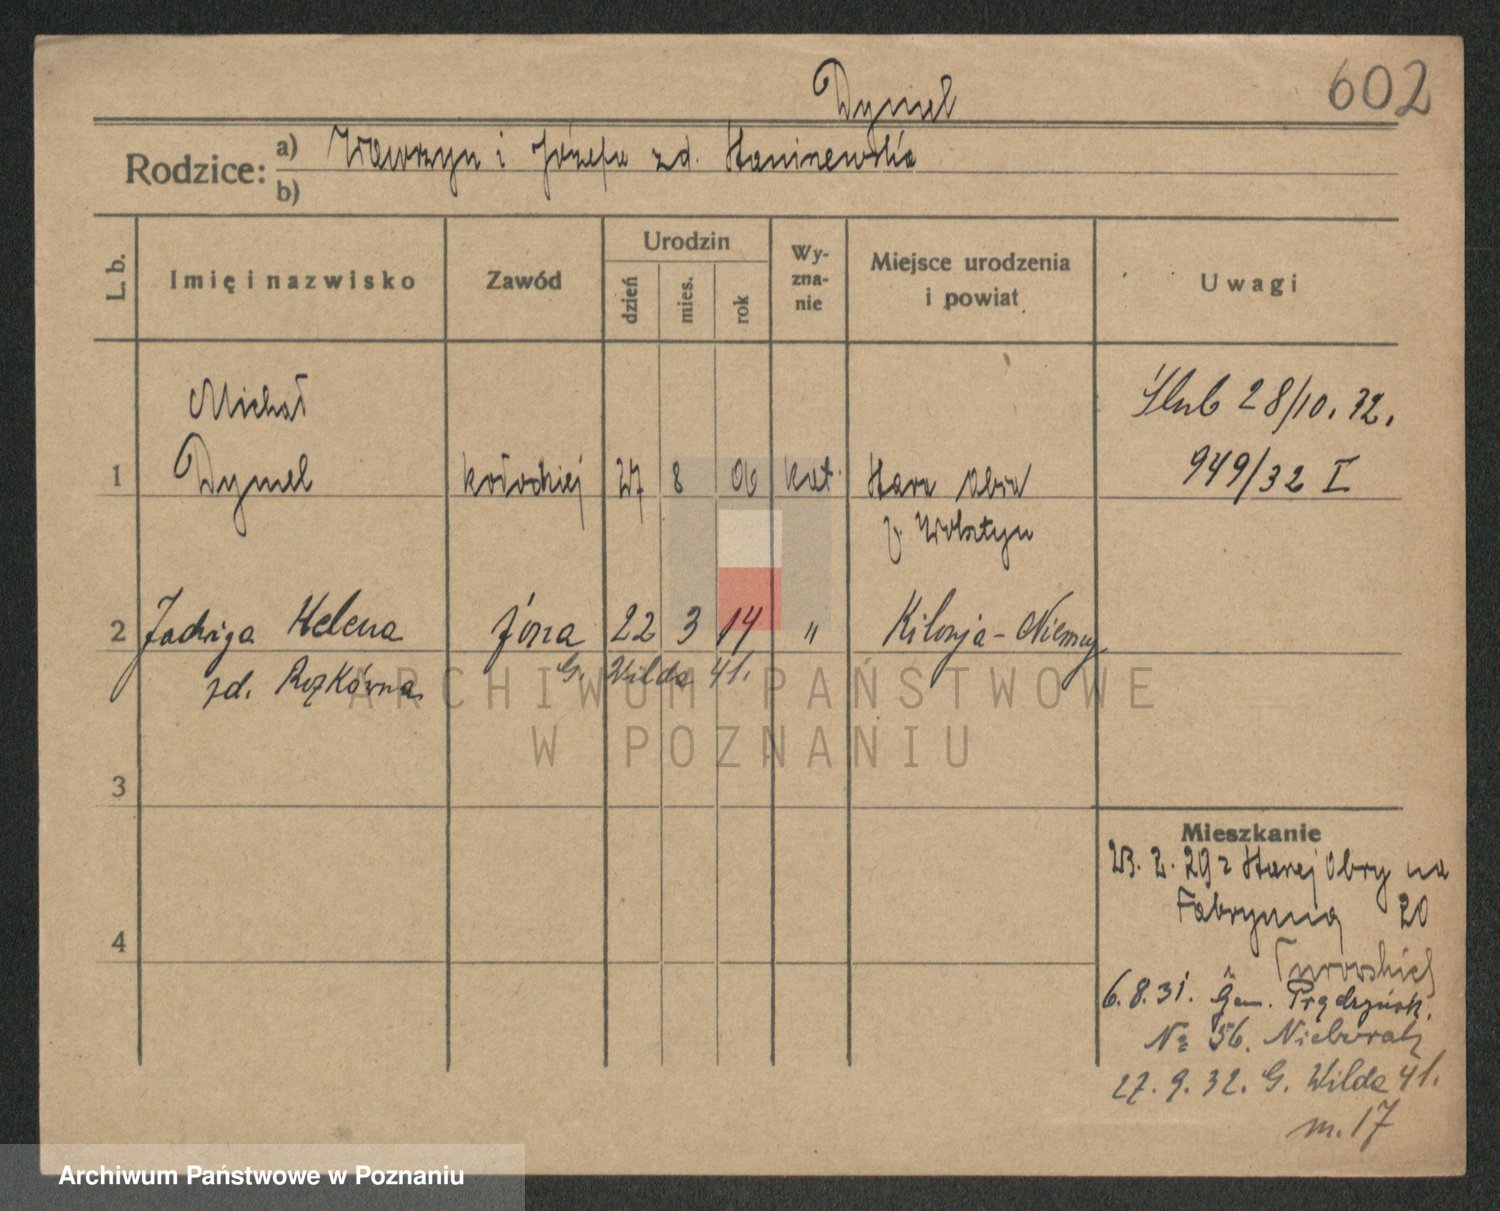 Dymel
602
Rodzice:
a) Wawrzyn i Józefa zd. Staniszewska
b)
L. b.
Imię i nazwisko
Zawód
Urodzin
dzień
mies.
rok
Wy-
zna-
nie
Miejsce urodzenia
i powiat
Uwagi
Michał
1 Dymel kołodziej 27 8 06 kat. Stara Obra
p. Wolsztyn
Ślub 28/10. 32.
949/32 I
2 Jadwiga Helena żona 22 3 14 " Kilonja - Niemcy
zd. G. Wilda 41.
3
4
Mieszkanie
23. 2. 29 z Starej Obry na
Fabryczną 20
Turowskich
6. 8. 31. Gen. Prądzyńsk.
No 56. Nieborak
27. 9. 32. G. Wilda 41.
m. 17
ARCHIWUM PAŃSTWOWE
W POZNANIU
Archiwum Państwowe w Poznaniu